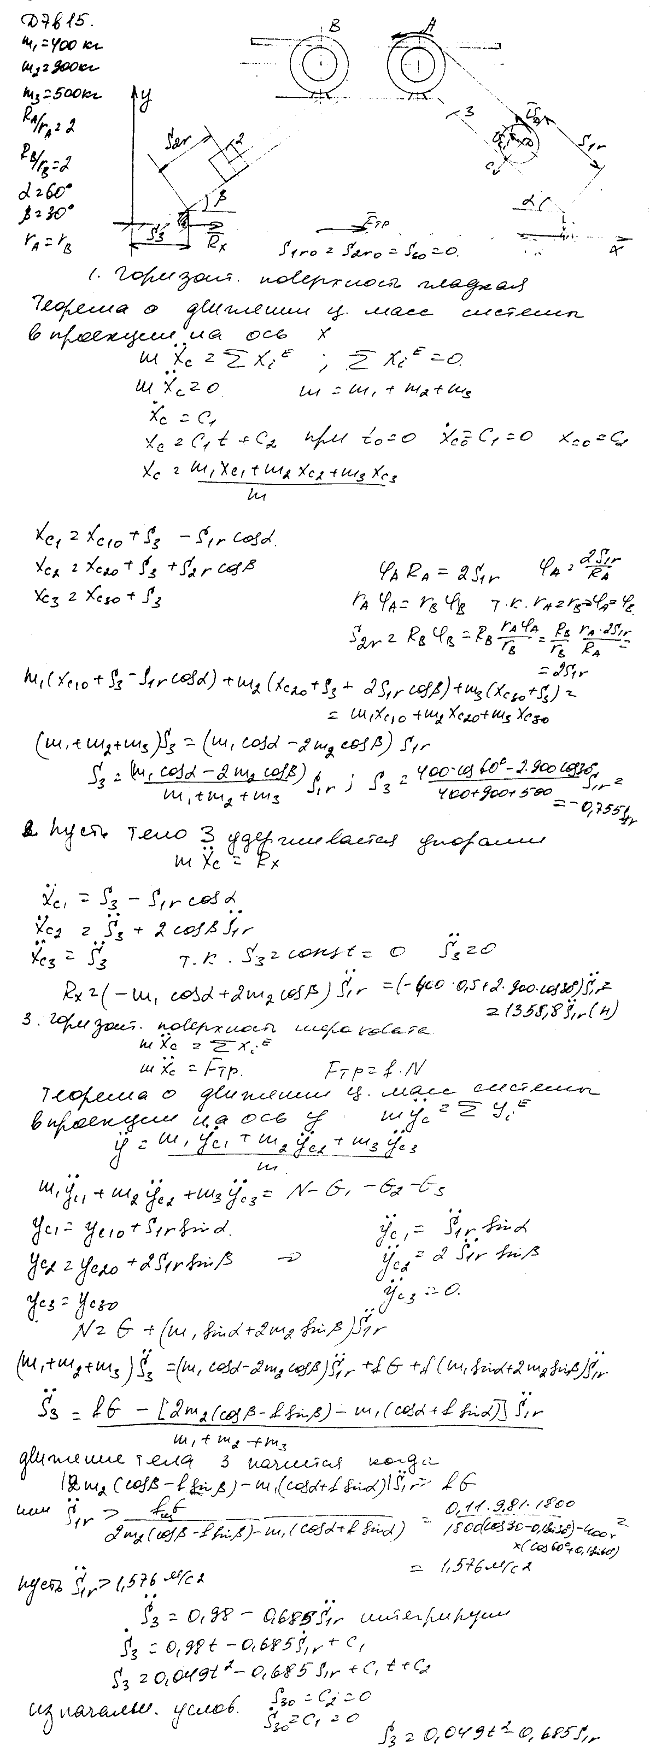 Д7В15.
m₁=400 кг
m₂=900кг
m₃=500кг
R_A/r_A=2
R_B/r_B=2
α=60°
β=30°
r_A=r_B
y
B
A
S₂r
2
β
S₃
R̄x
3
S₁r
α
x
F̄тр
S₁r₀=S₂r₀=S₆₀=0.
1. Горизонт. поверхность гладкая
Теорема о движении ц. масс системы
в проекции на ось x
mẍc=ΣXiᴱ ; ΣXiᴱ=0.
mẍc=0. m=m₁+m₂+m₃
ẋc=C₁
xc=C₁t+C₂ при t₀=0 ẋc₀=C₁=0 xc₀=C₂
xc=(m₁xc₁+m₂xc₂+m₃xc₃)/m
xc₁=xc₁₀+S₃-S₁r cosα.
xc₂=xc₂₀+S₃+S₂r cosβ
xc₃=xc₃₀+S₃
φ_A R_A=2S₁r φ_A=2S₁r/R_A
r_Aφ_A=r_Bφ_B т.к. r_A=r_B=>φ_A=φ_B
S₂r=R_Bφ_B=R_B r_Aφ_A/r_B=R_B/r_B r_A·2S₁r/R_A=
=2S₁r
m₁(xc₁₀+S₃-S₁r cosα)+m₂(xc₂₀+S₃+2S₁r cosβ)+m₃(xc₃₀+S₃)=
=m₁xc₁₀+m₂xc₂₀+m₃xc₃₀
(m₁+m₂+m₃)S₃=(m₁cosα-2m₂cosβ)S₁r
S₃=(m₁cosα-2m₂cosβ)/(m₁+m₂+m₃) S₁r ; S₃=(400·cos60°-2·900cos30)/(400+900+500) S₁r=
=-0,755S₁r
2 Пусть тело 3 удерживается упорами
mẍc=Rx
ẍc₁=S̈₃-S̈₁r cosα
ẍc₂=S̈₃+2cosβS̈₁r
ẍc₃=S̈₃ т.к. S₃=const=0 S̈₃=0
Rx=(-m₁cosα+2m₂cosβ)S̈₁r=(-400·0,5+2·900·cos30)S̈₁r=
=1358,8S̈₁r(н)
3. Горизонт. поверхность шероховата
mẍc=ΣXiᴱ
mẍc=Fтр. Fтр=f·N
Теорема о движении ц. масс системы
в проекции на ось y mÿc=ΣYiᴱ
ÿ=(m₁ÿc₁+m₂ÿc₂+m₃ÿc₃)/m
m₁ÿc₁+m₂ÿc₂+m₃ÿc₃=N-G₁-G₂-G₃
yc₁=yc₁₀+S₁r sinα. ÿc₁=S̈₁r sinα
yc₂=yc₂₀+2S₁r sinβ => ÿc₂=2S̈₁r sinβ
yc₃=yc₃₀ ÿc₃=0.
N=G+(m₁sinα+2m₂sinβ)S̈₁r
(m₁+m₂+m₃)S̈₃=(m₁cosα-2m₂cosβ)S̈₁r+fG+f(m₁sinα+2m₂sinβ)S̈₁r
S̈₃=(fG-[2m₂(cosβ-fsinβ)-m₁(cosα+fsinα)]S̈₁r)/(m₁+m₂+m₃)
движение тела 3 начнется когда
[2m₂(cosβ-fsinβ)-m₁(cosα+fsinα)]S̈₁r> fG
или S̈₁r>fG/(2m₂(cosβ-fsinβ)-m₁(cosα+fsinα))=0,11·9,81·1800/(1800(cos30-0,1sin30)-400×
×(cos60°+0,1sin60))=
=1,576м/с2
пусть S̈₁r>1,576м/с2
S̈₃=0,98-0,685S̈₁r интегрируем
Ṡ₃=0,98t-0,685Ṡ₁r+C₁
S₃=0,049t²-0,685S₁r+C₁t+C₂
из начальн. услов. S₃₀=C₂=0
Ṡ₃₀=C₁=0
S₃=0,049t²-0,685S₁r